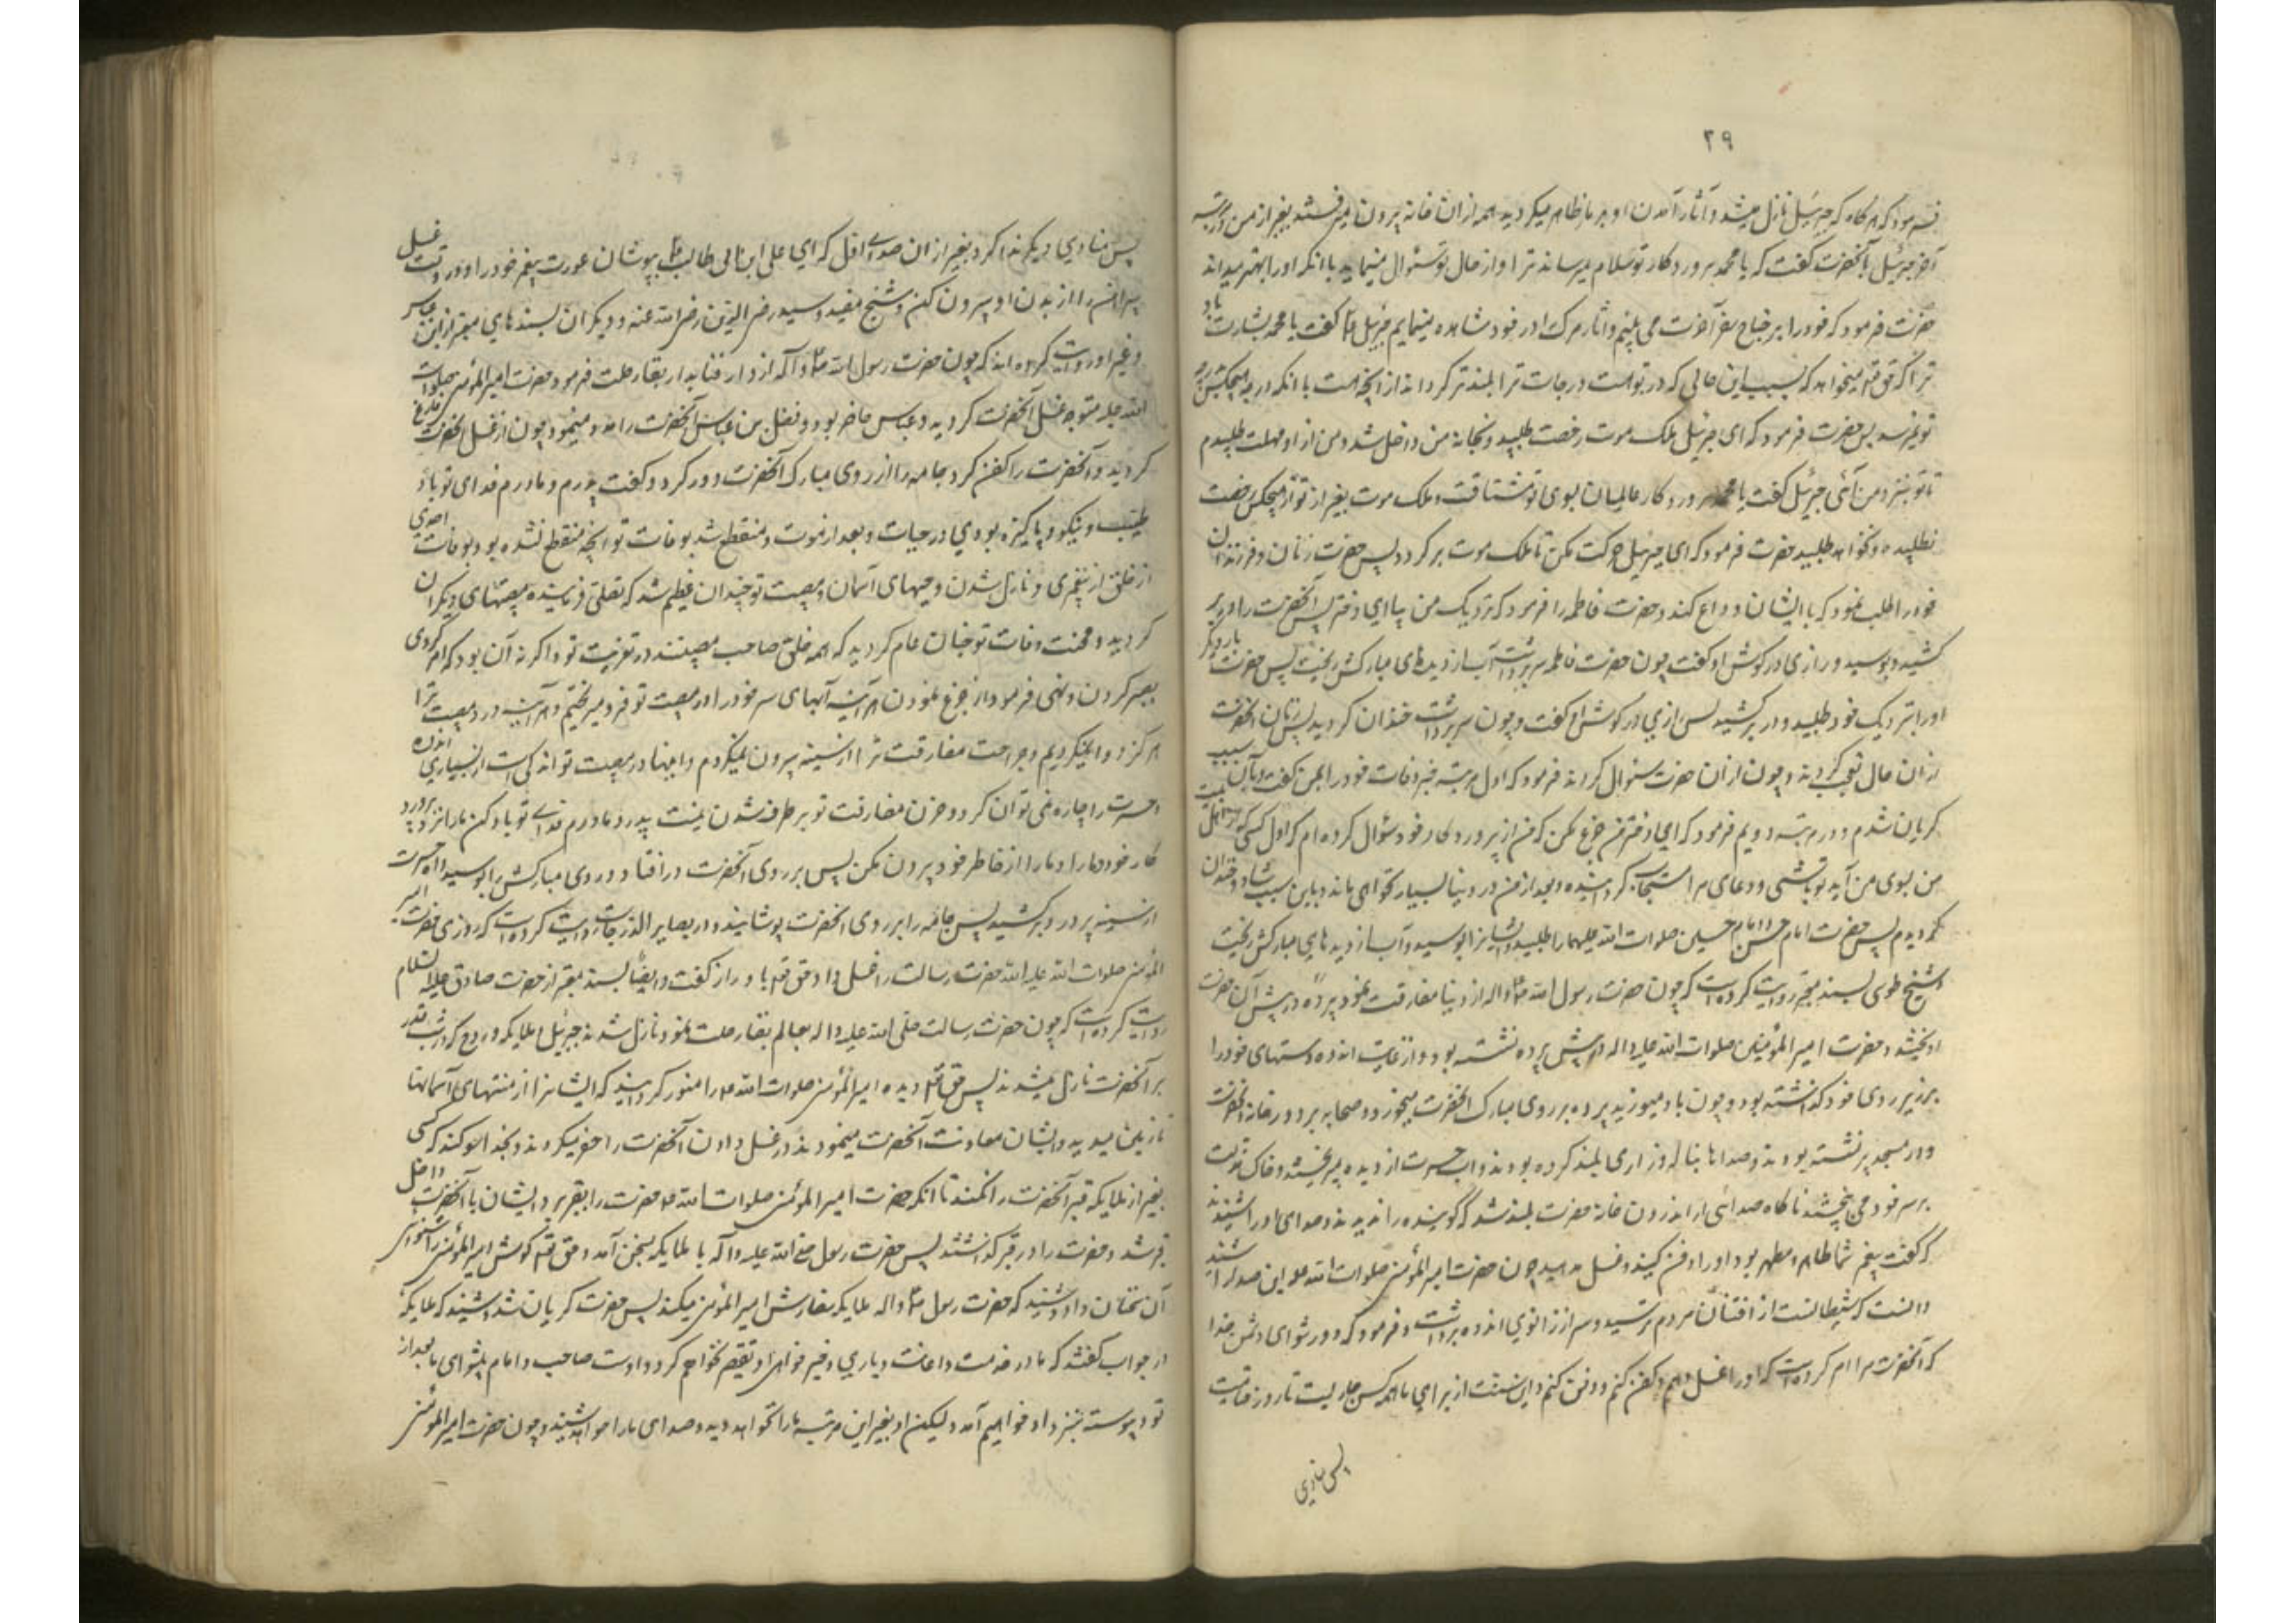 ۲۹
فرمود که هرگاه که جبرئیل نازل میشد و آثار آمدن او بر ما ظاهر میگردید همه ازان خانه بیرون میرفتند بغیر از من در مرتبه
آخر جبرئیل بآنحضرت گفت که یا محمد پروردکار تو سلام میرساند ترا و از حال تو سئوال مینماید با انکه او را بهتر میداند
حضرت فرمود که خود را بر جناح سفر آخرت می بینم و اثار مرک را در خود مشاهده مینمایم جبرئیل گفت یا محمد بشارت باد
ترا که حق میخواهد که بسبب این حالی که در تو هست درجات ترا بلندتر گرداند از آنچه هست با انکه درجه هیچکس بدرجه
تو نمیرسد پس حضرت فرمود که ای جبرئیل ملک موت رخصت طلبید و بخانه من داخل شد و من از او مهلت طلبیدم
تا تو بنزد من آئی جبرئیل گفت یا محمد پروردکار عالمیان بسوی تو مشتاقست و ملک موت بغیر از تو از هیچکس رخصت
نطلبیده و نخواهد طلبید حضرت فرمود که ای جبرئیل حرکت مکن تا ملک موت برگردد پس حضرت زنان و فرزندان
خود را طلب نمود که با ایشان وداع کند و حضرت فاطمه را فرمود که نزدیک من بیا ای دختر پس آنحضرت را در بر
کشید و بوسید و رازی در کوش او گفت چون حضرت فاطمه سر برداشت آب از دیدهای مبارکش ریخت پس حضرت بار دیگر
او را بنزدیک خود طلبید و در بر کشید پس رازی در کوش او گفت و چون سر برداشت خندان گردید پس زنان آنحضرت
ازان حال تعجب کردند و چون ازان حضرت سئوال کردند فرمود که اول مرتبه خبر وفات خود را بمن گفت و بآن سبب
گریان شدم و در مرتبه دویم فرمود که ای دختر من جزع مکن که من از پروردکار خود سئوال کرده ام که اول کسی که از اهل بیت
من بسوی من آید تو باشی و دعای مرا مستجاب گردانیده و بعد از من در دنیا بسیار نخواهی ماند و باین سبب شاد و خندان
گردیدم پس حضرت امام حسن و امام حسین صلوات الله علیهما را طلبید و ایشانرا بوسید و آب از دیدهای مبارکش ریخت
و شیخ طوسی بسند معتبر روایت کرده است که چون حضرت رسول الله و آله از دنیا مفارقت نمود پرده در پیش آن حضرت
اویخته شد و حضرت امیر المؤمنین صلوات الله علیه و اله در پیش پرده نشسته بود و از غایت اندوه دستهای خود را
بر زیر روی خود گذاشته بود و چون باد میوزید پرده بر روی مبارک آنحضرت میخورد و صحابه بر در خانه آنحضرت
و در مسجد پر نشسته بودند و صداها بناله و زاری بلند کرده بودند و اب حسرت از دیده میریختند و خاک مذلت
بر سر خود می بیختند ناگاه صدائی از اندرون خانه حضرت بلند شد که گوینده را ندیدند و صدای او را شنیدند
که گفت پیغمبر شما طاهر و مطهر بود او را دفن کنید و غسل مدهید چون حضرت امیر المؤمنین صلوات الله علیه این صدا را شنید
دانست که شیطانست از افتتان مردم ترسید و سر از زانوی اندوه برداشت و فرمود که دور شو ای دشمن خدا
که آنحضرت مرا امر کرده است که او را غسل دهم و کفن کنم و دفن کنم و این سنت از برای ما همه کس جاریست تا روز قیامت
پس منادی
پس منادی دیگر ندا کرد بغیر ازان صدای اول که ای علی ابن ابی طالب بپوشان عورت پیغمبر خود را و در وقت غسل
پیراهن را از بدن او بیرون مکن و شیخ مفید و سید رضی الدین رضی الله عنه و دیگران بسندهای معتبر از ابن عباس
و غیر او روایت کرده اند که چون حضرت رسول الله و آله از دار فنا بدار بقا رحلت فرمود حضرت امیر المؤمنین صلوات
الله علیه متوجه غسل آنحضرت گردید و عباس حاضر بود و فضل بن عباس آنحضرت را مدد مینمود چون از غسل آنحضرت فارغ
گردید و آنحضرت را کفن کرد جامه را از روی مبارک آنحضرت دور کرد و گفت پدرم و مادرم فدای تو باد
طیب و نیکو و پاکیزه بودی در حیات و بعد از موت و منقطع شد بوفات تو آنچه منقطع نشده بود بوفات احدی
از خلق از پیغمبری و نازل شدن وحیهای آسمان و مصیبت تو چندان عظیم شد که تسلی فرماینده مصیبتهای دیگران
گردید و محنت وفات تو چنان عام گردید که همه خلق صاحب مصیبتند در تعزیت تو و اگر نه آن بود که امر کردی
بصبر کردن و نهی فرمود از جزع نمودن هر آینه آبهای سر خود را در مصیبت تو فرو میریختیم و هر آینه درد مصیبت ترا
هرگز دوا نمیکردیم و جراحت مفارقت ترا از سینه بیرون نمیکردم و اینها در مصیبت تو اندکی است از بسیاری اندوه
حسرت را چاره نمی توان کرد و حزن مفارقت تو برطرف شدن نیست پدر و مادرم فدای تو باد یاد کن ما را نزد پرورد
کار خود و ما را از خاطر خود بیرون مکن پس بر روی آنحضرت در افتاد و روی مبارکش را بوسید و آه حسرت
از سینه پر درد بر کشید پس جامه را بر روی انحضرت پوشانید و در بصایر الدرجات روایت کرده است که روزی حضرت امیر
المؤمنین صلوات الله علیه حضرت رسالت را غسل داد حق با او راز گفت و ایضا بسند معتبر از حضرت صادق علیه السلام
روایت کرده است که چون حضرت رسالت صلی الله علیه و اله بعالم بقا رحلت نمود نازل شدند جبرئیل و ملایکه و روح که در شب قدر
بر آنحضرت نازل میشدند پس حق دیده امیر المؤمنین صلوات الله را منور گردانید که ایشانرا از منتهای آسمانها
تا زمین میدید و ایشان معاونت آنحضرت مینمودند در غسل دادن آنحضرت را حفر میکردند و بخدا سوگند که کسی
بغیر از ملایکه قبر آنحضرت را نکند تا انکه حضرت امیر المؤمنین صلوات الله حضرت را بقبر برد ایشان با آنحضرت داخل
قبر شدند و حضرت را در قبر گذاشتند پس حضرت رسول صلی الله علیه و آله با ملایکه بسخن آمد و حق گوش امیر المؤمنین را شنوای
آن سخنان داد و شنید که حضرت رسول و اله ملایکه سفارش امیر المؤمنین میکند پس حضرت گریان شد و شنید که ملایکه
در جواب گفتند که ما در خدمت و اعانت و یاری و خیر خواهی او تقصیر نخواهیم کرد و اوست صاحب و امام پیشوای ما بعد از
تو و پیوسته بنزد او خواهیم آمد و لیکن او بغیر این مرتبه ما را نخواهد دید و صدای ما را خواهد شنید و چون حضرت امیر المؤمنین